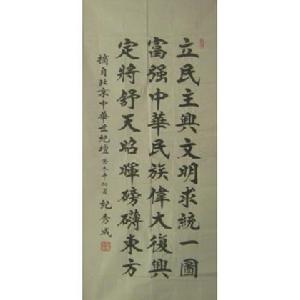 立民主興文明求統一圖
富强中華民族偉大復興
定將舒天昭暉磅礴東方
摘自北京中華世紀壇 癸未年 紀秀成